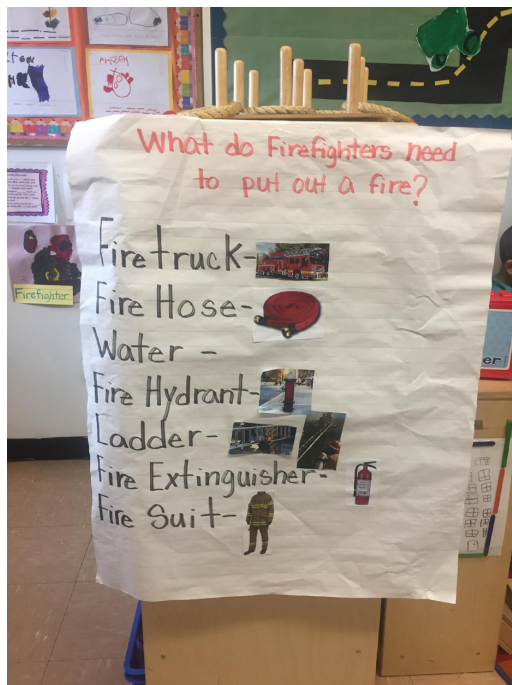 What do Firefighters need
to put out a fire?
Firetruck-
Fire Hose-
Water -
Fire Hydrant-
Ladder-
Fire Extinguisher-
Fire Suit-
Firefighter
er!